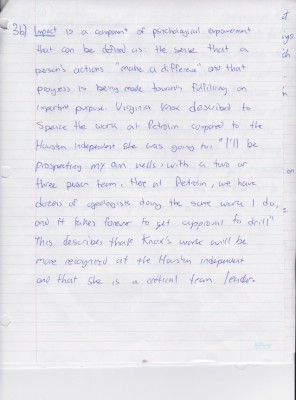 3b) Impact is a component of psychological empowerment
that can be defined as: the sense that a
person's actions "make a difference" and that
progress is being made towards fulfilling an
important purpose. Virginia Knox described to
Spence the work at Petrolin compared to the
Houston Independent she was going to: "I'll be
prospecting my own wells, with a two or
three person team. Here at Petrolin, we have
dozens of ogeologists doing the same work I do,
and it takes forever to get approval to drill"
This describes that Knox's work will be
more recognized at the Houston independent
and that she is a critical team leader.